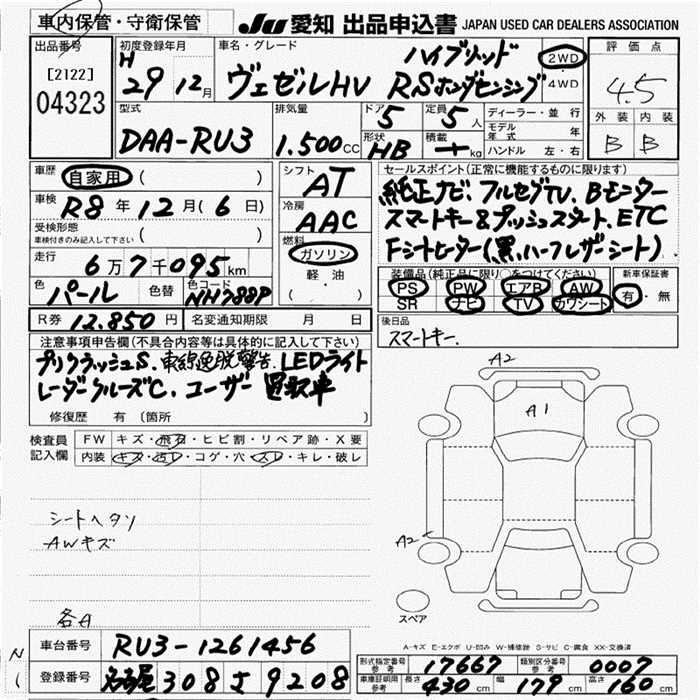 車内保管・守衛保管
JU 愛知 出品申込書 JAPAN USED CAR DEALERS ASSOCIATION
出品番号
[2122]
04323
初度登録年月
H 29 12月
車名・グレード
ハイブリッド
ヴェゼルHV RSホンダセンシング
2WD
・
4WD
評価点
4.5
外装 内装
B B
型式
DAA-RU3
排気量
1.500cc
ドア
5
定員
5人
形状
HB
積載
kg
ディーラー・並行
モデル年式 年
ハンドル 左・右
車歴
自家用 ( )
車検
R8年12月(6日)
受検形態
車検付きのみ記入して下さい ( )
走行
6万7千095km
色
パール
色替
色コード
NH788P
シフト
AT
冷房
AAC
燃料
ガソリン
軽油
( )
セールスポイント(正常に機能するものに限ります)
純正ナビ、フルセグTV、Bモニター
スマートキー&プッシュスタート、ETC
Fシートヒーター(黒、ハーフレザーシート)
装備品(純正品に限り○をつけてください)
PS PW エアB AW
SR ナビ TV カワシート
新車保証書
有・無
R券 12.850円
名変通知期限 月 日
後日品
スマートキー.
注意事項申告欄(不具合内容等は具体的に記入して下さい)
プリクラッシュS、車線逸脱警告、LEDライト
レーダークルーズC、ユーザー買取車
修復歴 有 (箇所 )
検査員
記入欄
FW キズ・飛石・ヒビ割・リペア跡・X要
内装 キズ・汚レ・コゲ・穴・スレ・キレ・破レ
シートヘタリ
AWキズ
各A
A2
A1
A2
スペア
A-キズ E-エクボ U-凹み W-補修跡 S-サビ C-腐食 XX-交換済
車台番号 RU3-1261456
登録番号 名古屋 308 す 9208
型式指定番号
参考 17667
類別区分番号
参考 0007
車庫証明用
参考 長さ 430cm 幅 179cm 高さ 160cm